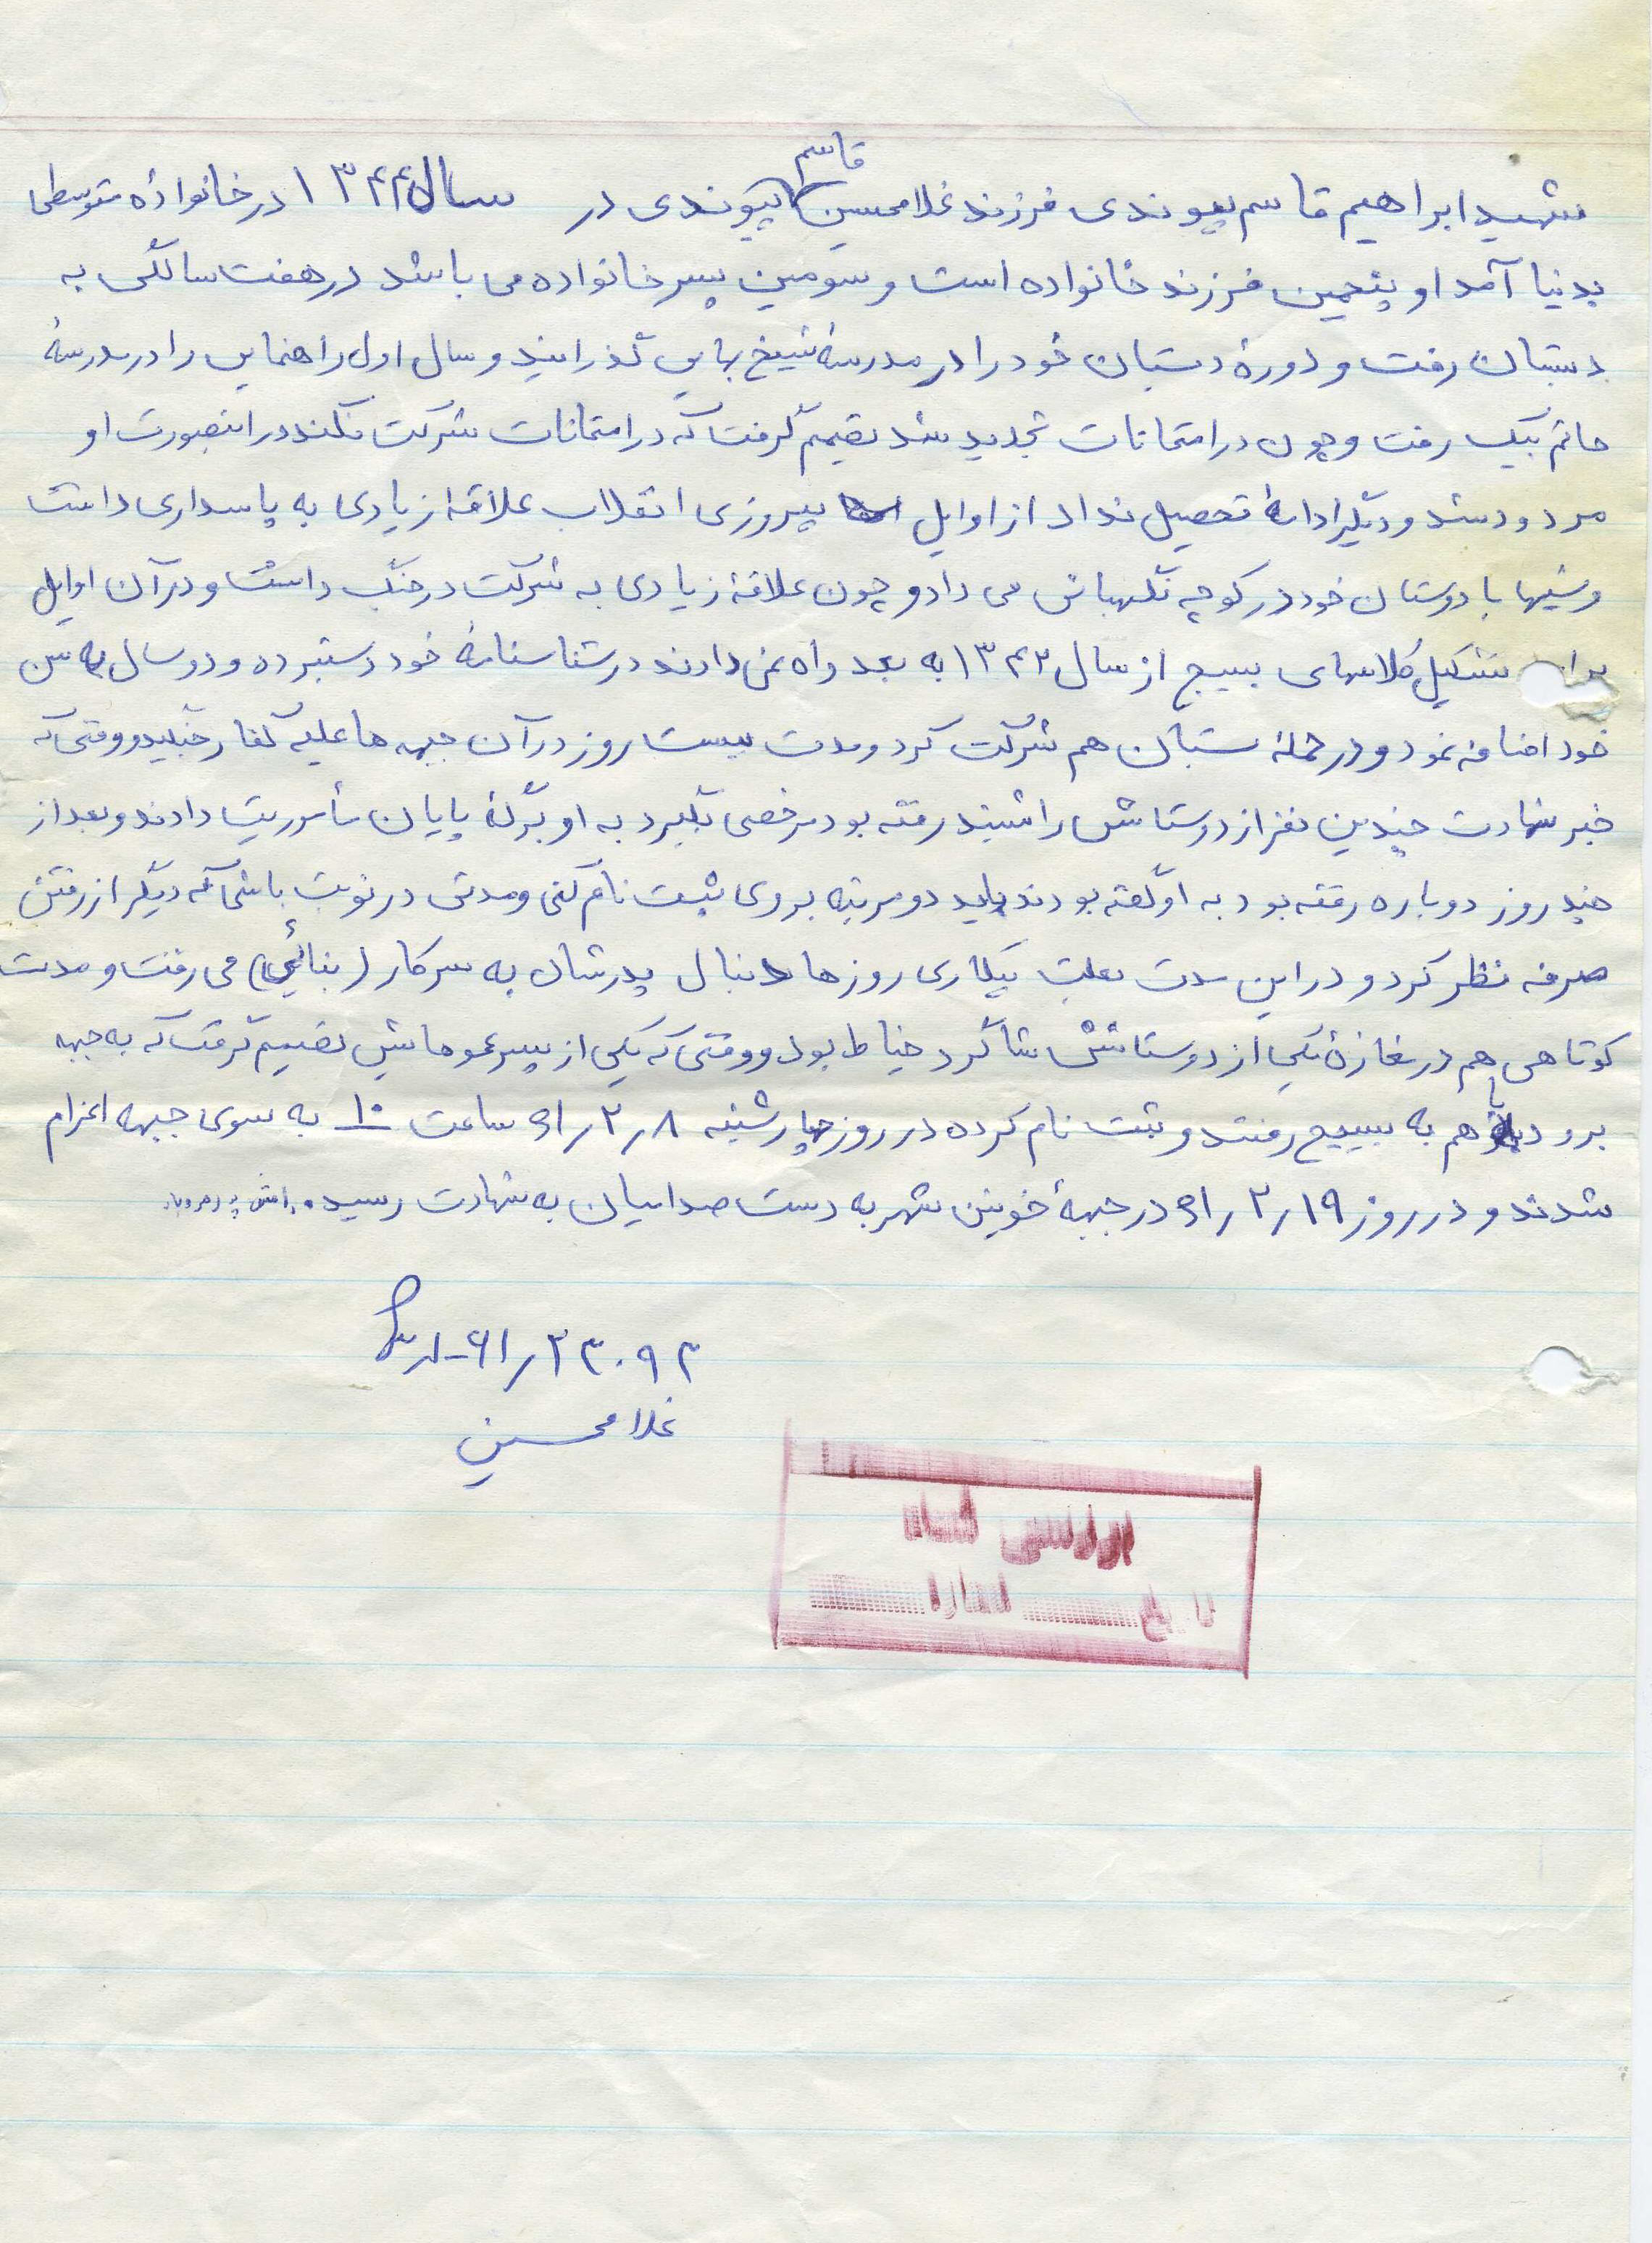 قاسم
شهید ابراهیم قاسم پیوندی فرزند غلامحسین پیوندی در سال ۱۳۴۴ در خانواده متوسطی
بدنیا آمد او پنجمین فرزند خانواده است و سومین پسر خانواده می باشد در هفت سالگی به
دبستان رفت و دورهٔ دبستان خود را در مدرسهٔ شیخ بهایی گذرانید و سال اول راهنمایی را در مدرسهٔ
حاتم بیک رفت و چون در امتحانات تجدید شد تصمیم گرفت که در امتحانات شرکت نکند در اینصورت او
مردود شد و دیگر ادامهٔ تحصیل نداد از اوایل پیروزی انقلاب علاقهٔ زیادی به پاسداری داشت
و شبها با دوستان خود در کوچه نگهبانی می داد و چون علاقهٔ زیادی به شرکت در جنگ داشت و در آن اوایل
برای تشکیل کلاسهای بسیج از سال ۱۳۴۲ به بعد راه نمی دادند در شناسنامهٔ خود دستبرده و دو سال به سن
خود اضافه نمود و در حملهٔ بستان هم شرکت کرد و مدت بیست روز در آن جبهه ها علیه کفار جنگید و وقتی که
خبر شهادت چندین نفر از دوستانش را شنید رفته بود مرخصی بگیرد به او برگهٔ پایان مأموریت دادند و بعد از
چند روز دوباره رفته بود به او گفته بودند باید دو مرتبه بروی ثبت نام کنی و مدتی در نوبت باشی که دیگر از رفتن
صرفه نظر کرد و در این مدت بعلت بیکاری روزها دنبال پدرشان به سرکار (بنائی) می رفت و مدت
کوتاهی هم در مغازهٔ یکی از دوستانش شاگرد خیاط بود و وقتی که یکی از پسر عموهایش تصمیم گرفت که به جبهه
برود با هم به بسیج رفتند و ثبت نام کرده در روز چهارشنبه ۶۱٫۲٫۸ ساعت ۱۰ به سوی جبهه اعزام
شدند و در روز ۶۱٫۲٫۱۹ در جبههٔ خونین شهر به دست صدامیان به شهادت رسید.
غلامحسین
بررسی شد
تاریخ